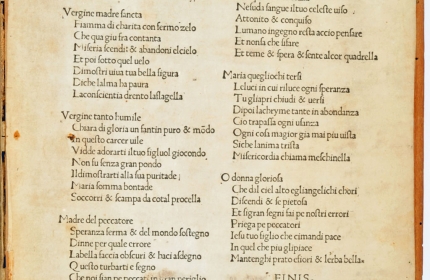 Vergine madre sancta
Fiamma di charita con sermo zelo
Che qua giu fra contanta
Miseria scendit & abandoni elcielo
Et poi sotto quel uelo
Dimostri uiua tua bella figura
Diche lalma ha paura
Laconscientia drento laflagella
Vergine tanto humile
Chiara di gloria un santin puro & mōdo
In questo carcer uile
Vidde adorarti iltuo figluol giocondo
Non su senza gran pondo
Ildimostrarti alla sua puritade
Maria somma bontade
Soccorri & scampa da cotal procella
Madre del peccatore
Speranza ferma & del mondo sostegno
Dinne per quale errore
Labella faccia obscuri & haci asdegno
Questo turbarti e segno
Che noi sian pe peccati in gran
Nesuda sangue iltuo celeste uiso
Attonito & conquiso
Lumano ingegno resta accio pensare
Et nonsa che sifare
Et teme & spera & sente alcor quadrella
Maria quegliochi tersi
Leluci in cui riluce ogni speranza
Tu gliapri chiudi & uersi
Dipoi lachryme tante in abondanza
Cio trapassa ogni usanza
Ogni cosa magior gia mai piu uista
Siche lanima trista
Misericordia chiama meschinella
O donna gloriosa
Che dil ciel alto egliangelichi chori
Discendi & se pietosa
Et sigran segni fai pe nostri errori
Priega pe peccatori
Iesu tuo figlio che cimandi pace
In quel che piu glipiace
Mantenghi prato efiori & lerba bella
FINIS